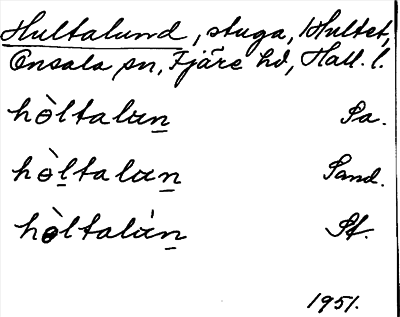 Hultalund, stuga, Hultet,
Onsala sn, Fjäre hd, Hall. l.
hɵ̀ltalan̲ Sa.
hɵ̀l̲talan̲ Sand.
hɵ̀ltalán̲ St.
1951.